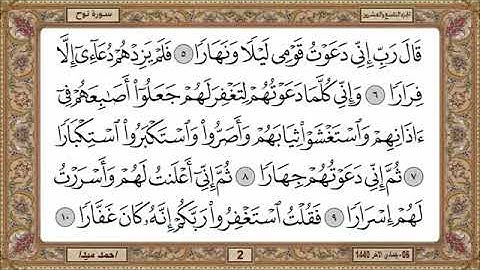 سورة نوح
الجزء التاسع والعشرين
قَالَ رَبِّ إِنِّي دَعَوْتُ قَوْمِي لَيْلًا وَنَهَارًا ٥ فَلَمْ يَزِدْهُمْ دُعَآءِىٓ إِلَّا
فِرَارًا ٦ وَإِنِّي كُلَّمَا دَعَوْتُهُمْ لِتَغْفِرَ لَهُمْ جَعَلُوٓا۟ أَصَٰبِعَهُمْ فِىٓ
ءَاذَانِهِمْ وَٱسْتَغْشَوْا۟ ثِيَابَهُمْ وَأَصَرُّوا۟ وَٱسْتَكْبَرُوا۟ ٱسْتِكْبَارًا
٧ ثُمَّ إِنِّي دَعَوْتُهُمْ جِهَارًا ٨ ثُمَّ إِنِّىٓ أَعْلَنتُ لَهُمْ وَأَسْرَرْتُ
لَهُمْ إِسْرَارًا ٩ فَقُلْتُ ٱسْتَغْفِرُوا۟ رَبَّكُمْ إِنَّهُۥ كَانَ غَفَّارًا ١٠
/احمد سيد/
2
06 - جمادي الآخر 1440